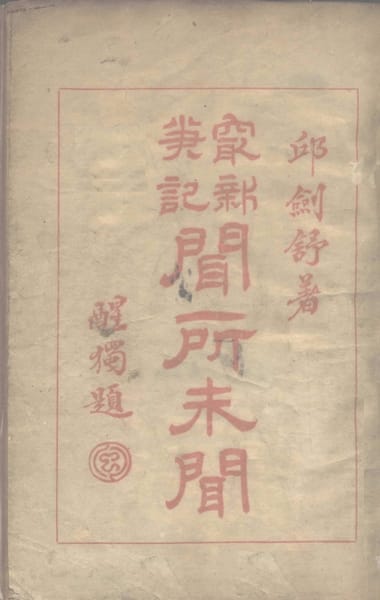 邱劍舒著
最新
筆記
聞所未聞
醒獨題